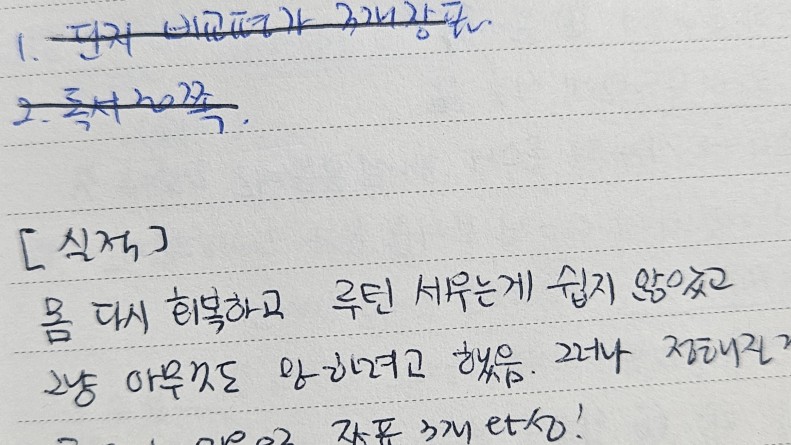 1. 단지 비교평가 3개 장표.
2. 독서 20쪽.
[실적]
몸 다시 회복하고 루틴 세우는게 쉽지 않았고
그냥 아무것도 안하려고 했음. 그러나 정해진
장표 3개 완성!